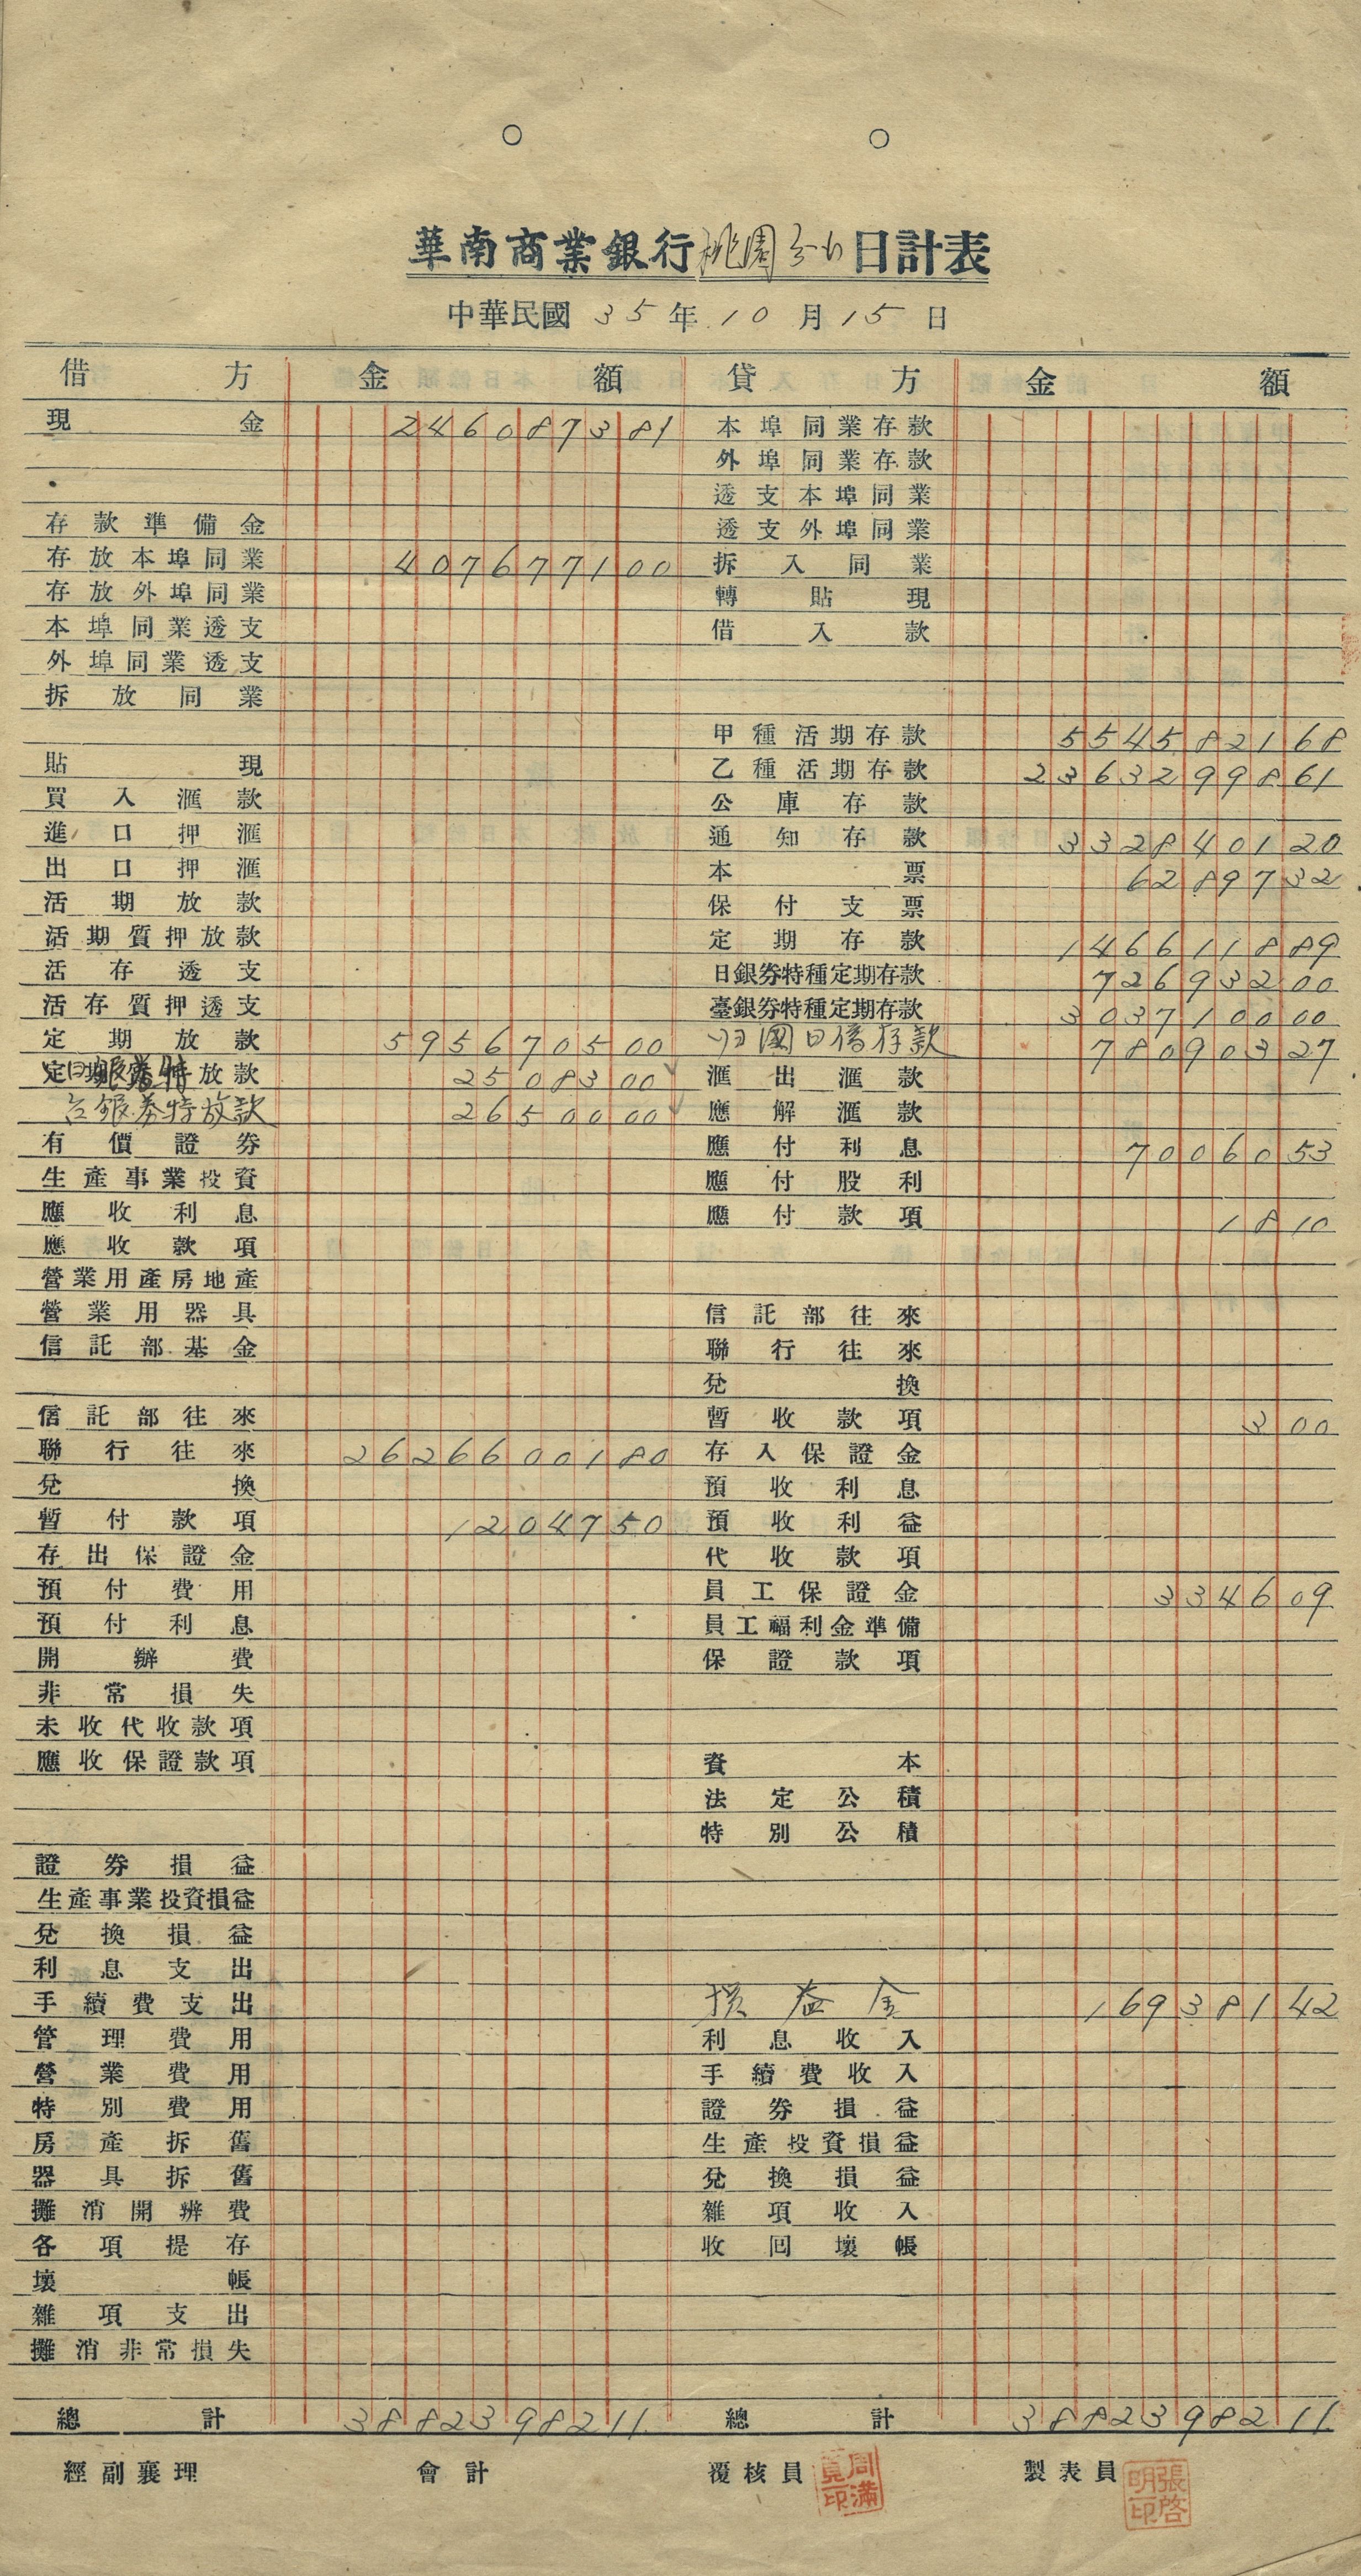 華南商業銀行桃園分行日計表
中華民國 35 年 10 月 15 日
借方 金額 貸方 金額
現金 246087381 本埠同業存款
外埠同業存款
透支本埠同業
存款準備金 透支外埠同業
存放本埠同業 407677100 拆入同業
存放外埠同業 轉貼現
本埠同業透支 借入款
外埠同業透支
拆放同業
甲種活期存款 554582168
貼現 乙種活期存款 2363299861
買入滙款 公庫存款
進口押滙 通知存款 332840120
出口押滙 本票 6289732
活期放款 保付支票
活期質押放款 定期存款 146611889
活存透支 日銀券特種定期存款 72693200
活存質押透支 臺銀券特種定期存款 303710000
定期放款 595670500 歸國日僑存款 78090327
日銀券特放款 2508300 滙出滙款
台銀券特放款 2650000 應解滙款
有價證券 應付利息 7006053
生產事業投資 應付股利
應收利息 應付款項 1810
應收款項
營業用產房地產
營業用器具 信託部往來
信託部基金 聯行往來
兌換
信託部往來 暫收款項 300
聯行往來 2626600180 存入保證金
兌換 預收利息
暫付款項 1204750 預收利益
存出保證金 代收款項
預付費用 員工保證金 334609
預付利息 員工福利金準備
開辦費 保證款項
非常損失
未收代收款項
應收保證款項 資本
法定公積
特別公積
證券損益
生產事業投資損益
兌換損益
利息支出
手續費支出 損益金 16938142
管理費用 利息收入
營業費用 手續費收入
特別費用 證券損益
房產拆舊 生產投資損益
器具拆舊 兌換損益
攤消開辦費 雜項收入
各項提存 收回壞帳
壞帳
雜項支出
攤消非常損失
總計 3882398211 總計 3882398211
經副襄理 會計 覆核員 製表員 張啓明印